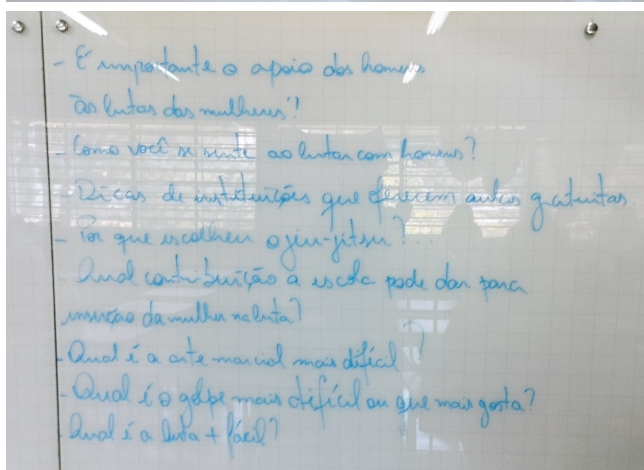 - É importante o apoio dos homens
às lutas das mulheres?
- Como você se sente ao lutar com homens?
- Dicas de instituições que oferecem aulas gratuitas
- Por que escolheu o jiu-jitsu?...
- Qual contribuição a escola pode dar para
inserção da mulher na luta?
- Qual é a arte marcial mais difícil?
- Qual é o golpe mais difícil ou que mais gosta?
- Qual é a luta + fácil?